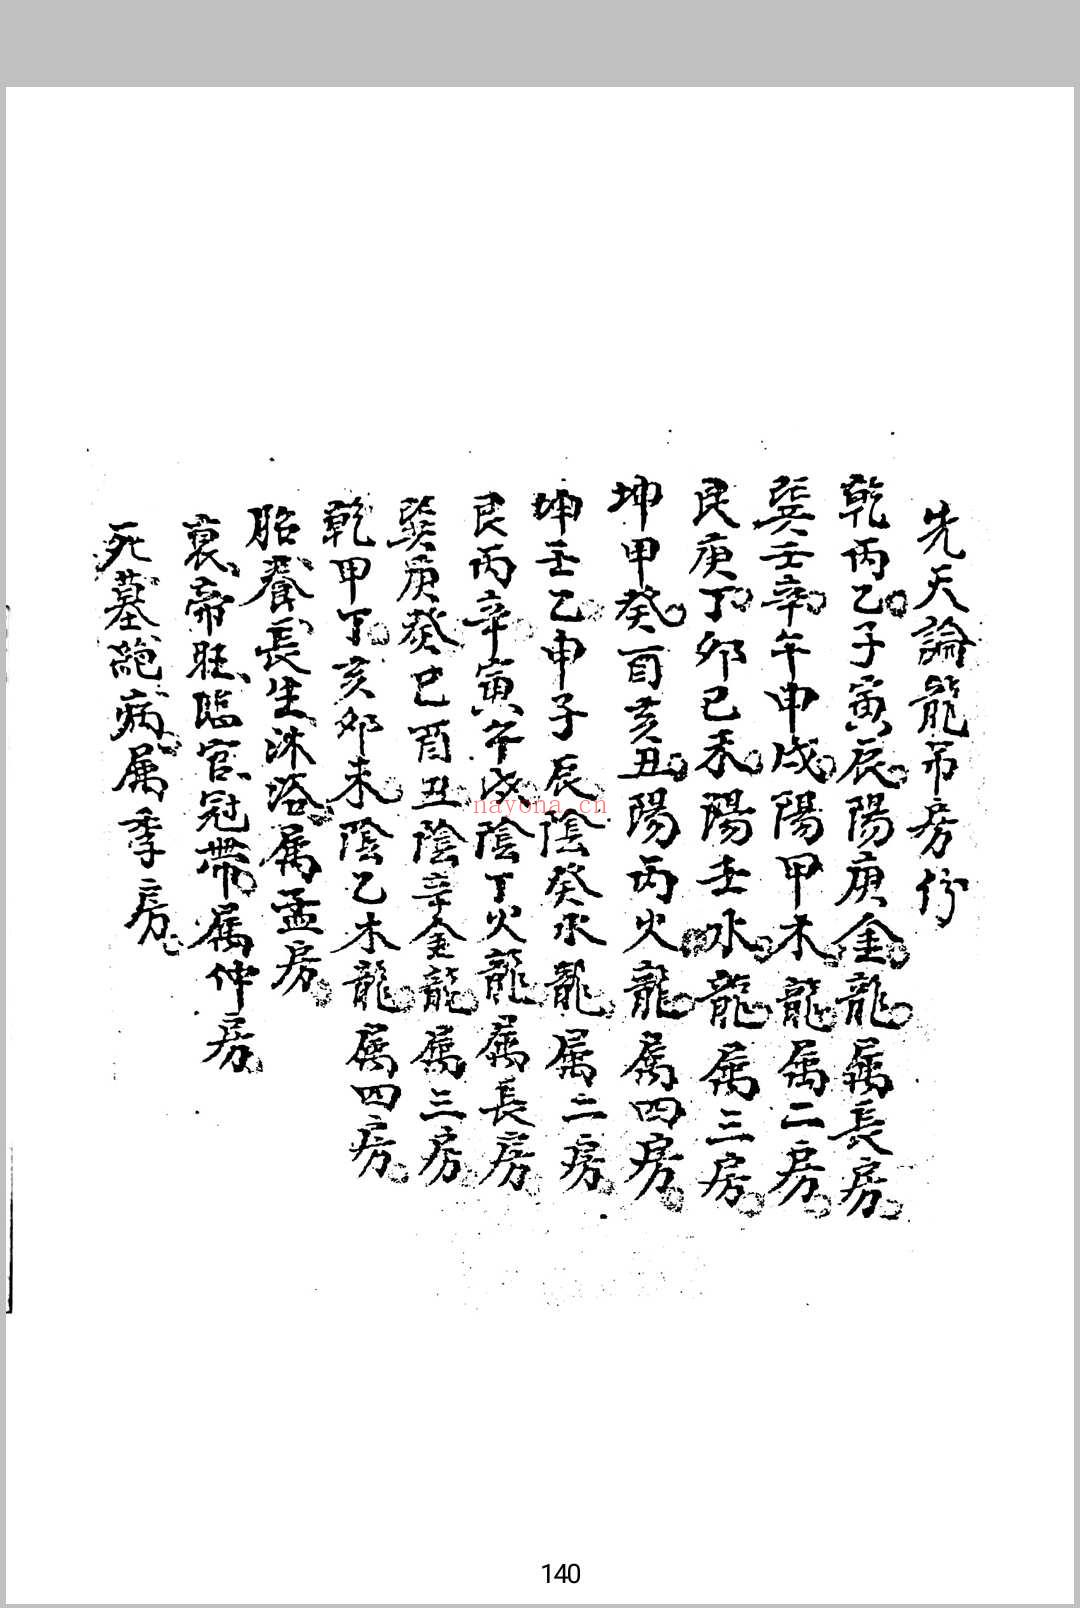 先天論龍吊房份
乾丙乙子寅辰陽庚金龍属長房
巽壬辛午申戌陽甲木龍属二房
艮庚丁卯巳未陽壬水龍属三房
坤甲癸酉亥丑陽丙火龍属四房
坤壬乙申子辰陰癸水龍属二房
艮丙辛寅午戌陰丁火龍属長房
巽庚癸巳酉丑陰辛金龍属三房
乾甲丁亥卯未陰乙木龍属四房
胎養長生沐浴属孟房
衰帝旺臨官冠帶属仲房
死墓絕病属季房
nayona.cn
140